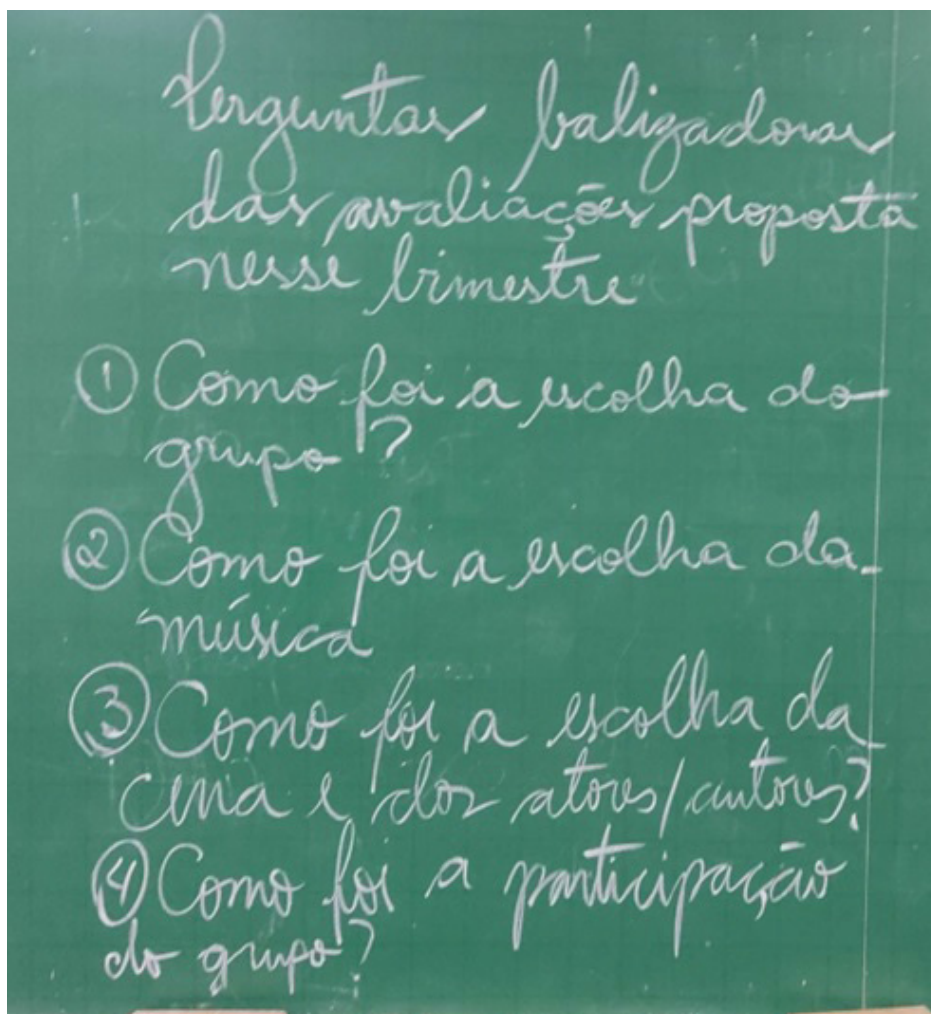 Perguntas balizadoras
das avaliações proposta
nesse bimestre
① Como foi a escolha do
grupo?
② Como foi a escolha da
música
③ Como foi a escolha da
cena e dos atores/autores?
④ Como foi a participação
do grupo?